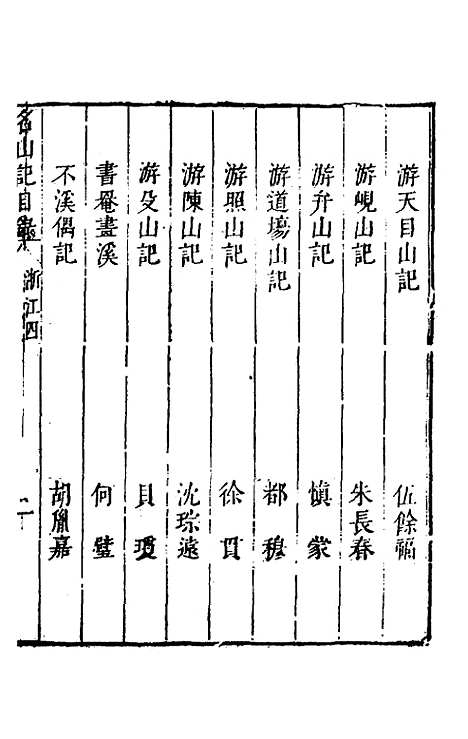 游天目山記 伍餘福
游峴山記 朱長春
游弁山記 慎蒙
游道場山記 都穆
游照山記 徐貫
游陳山記 沈琮遠
游殳山記 貝瓊
書罨畫溪 何鏜
不溪偶記 胡胤嘉
名山記目錄 浙江四 二